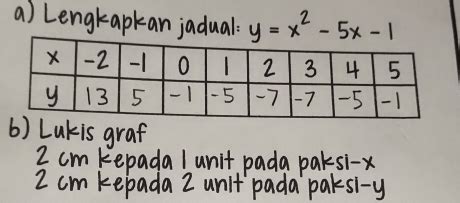 a) Lengkapkan jadual: y = x² - 5x - 1
x -2 -1 0 1 2 3 4 5
y 13 5 -1 -5 -7 -7 -5 -1
b) Lukis graf
2 cm kepada 1 unit pada paksi-x
2 cm kepada 2 unit pada paksi-y